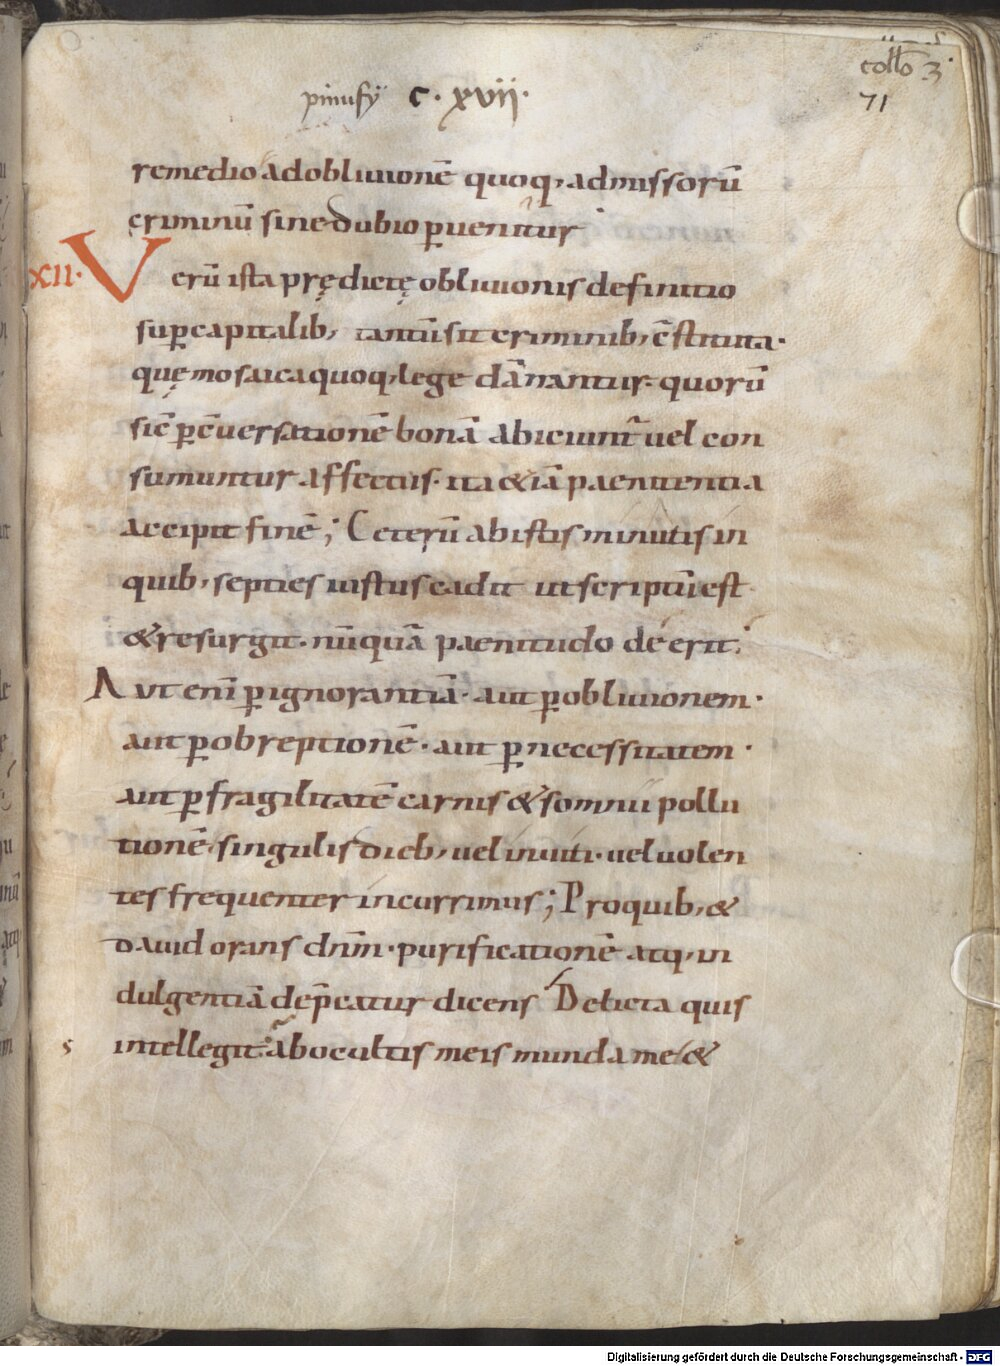 collō 3
71
pinufÿ c. xvii.
remedio ad obliuionē quoq; admissorū
criminū sine dubio ꝑuenitur
XII. Verū ista prędictę obliuionis definitio
suꝑ capitalib; tantū sit criminib; c̄stituta.
quę mosaica quoq; lege dānantur. quorū
sic̄ ꝑ c̄uersationē bonā abiciunt̄ uel con
sumuntur affectus. ita & iā paenitentia
accipit finē; Ceterū ab istis minutis in
quib; septies iustus cadit ut scriptū est
& resurgit. nūquā paenitudo deerit;
Aut eni̅ ꝑ ignorantiā. aut ꝑ obliuionem.
aut ꝑ obreptionē. aut ꝑ necessitatem.
aut ꝑ fragilitatē carnis & somnii pollu
tionē. singulis dieb; uel inuiti. uel uolen
tes frequenter incurrimus; Pro quib; &
dauid orans dn̄m. purificationē atq; in
dulgentiā dep̄catur dicens Delicta quis
s intellegit. ab ocultis meis munda me. &
Digitalisierung gefördert durch die Deutsche Forschungsgemeinschaft - DFG